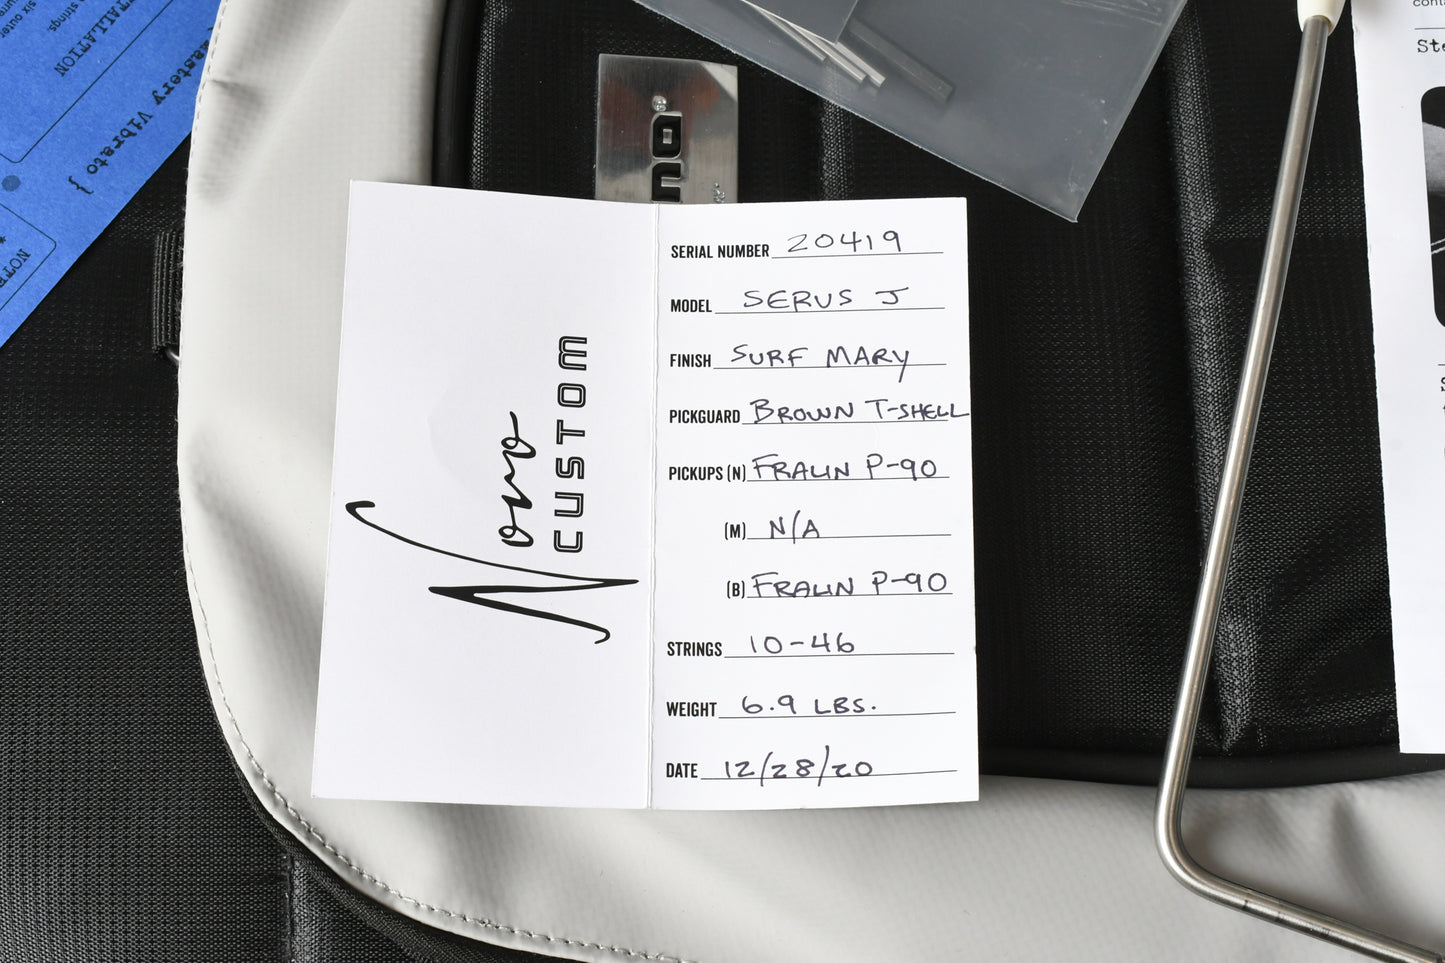 six outer
strings
TALLATION
Mastery Vibrato }
NOTE
Nono
CUSTOM
SERIAL NUMBER 20419
MODEL SERUS J
FINISH SURF MARY
PICKGUARD BROWN T-SHELL
PICKUPS (N) FRALIN P-90
(M) N/A
(B) FRALIN P-90
STRINGS 10-46
WEIGHT 6.9 LBS.
DATE 12/28/20